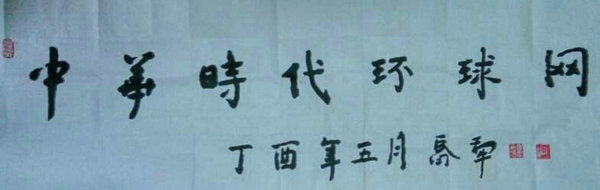 中華時代环球网
丁酉年五月